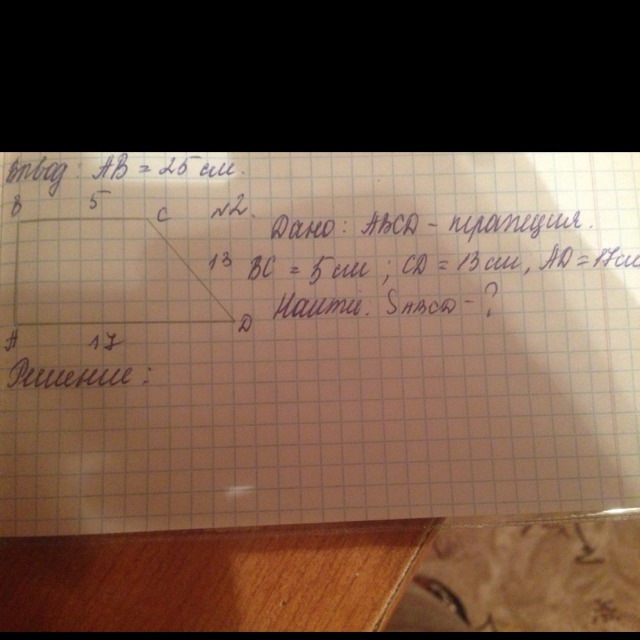 Вывод: AB = 25 см.
B 5 C №2.
Дано: ABCD - трапеция.
13 BC = 5 см ; CD = 13 см, AD = 17см
Найти: SABCD - ?
A 17 D
Решение: